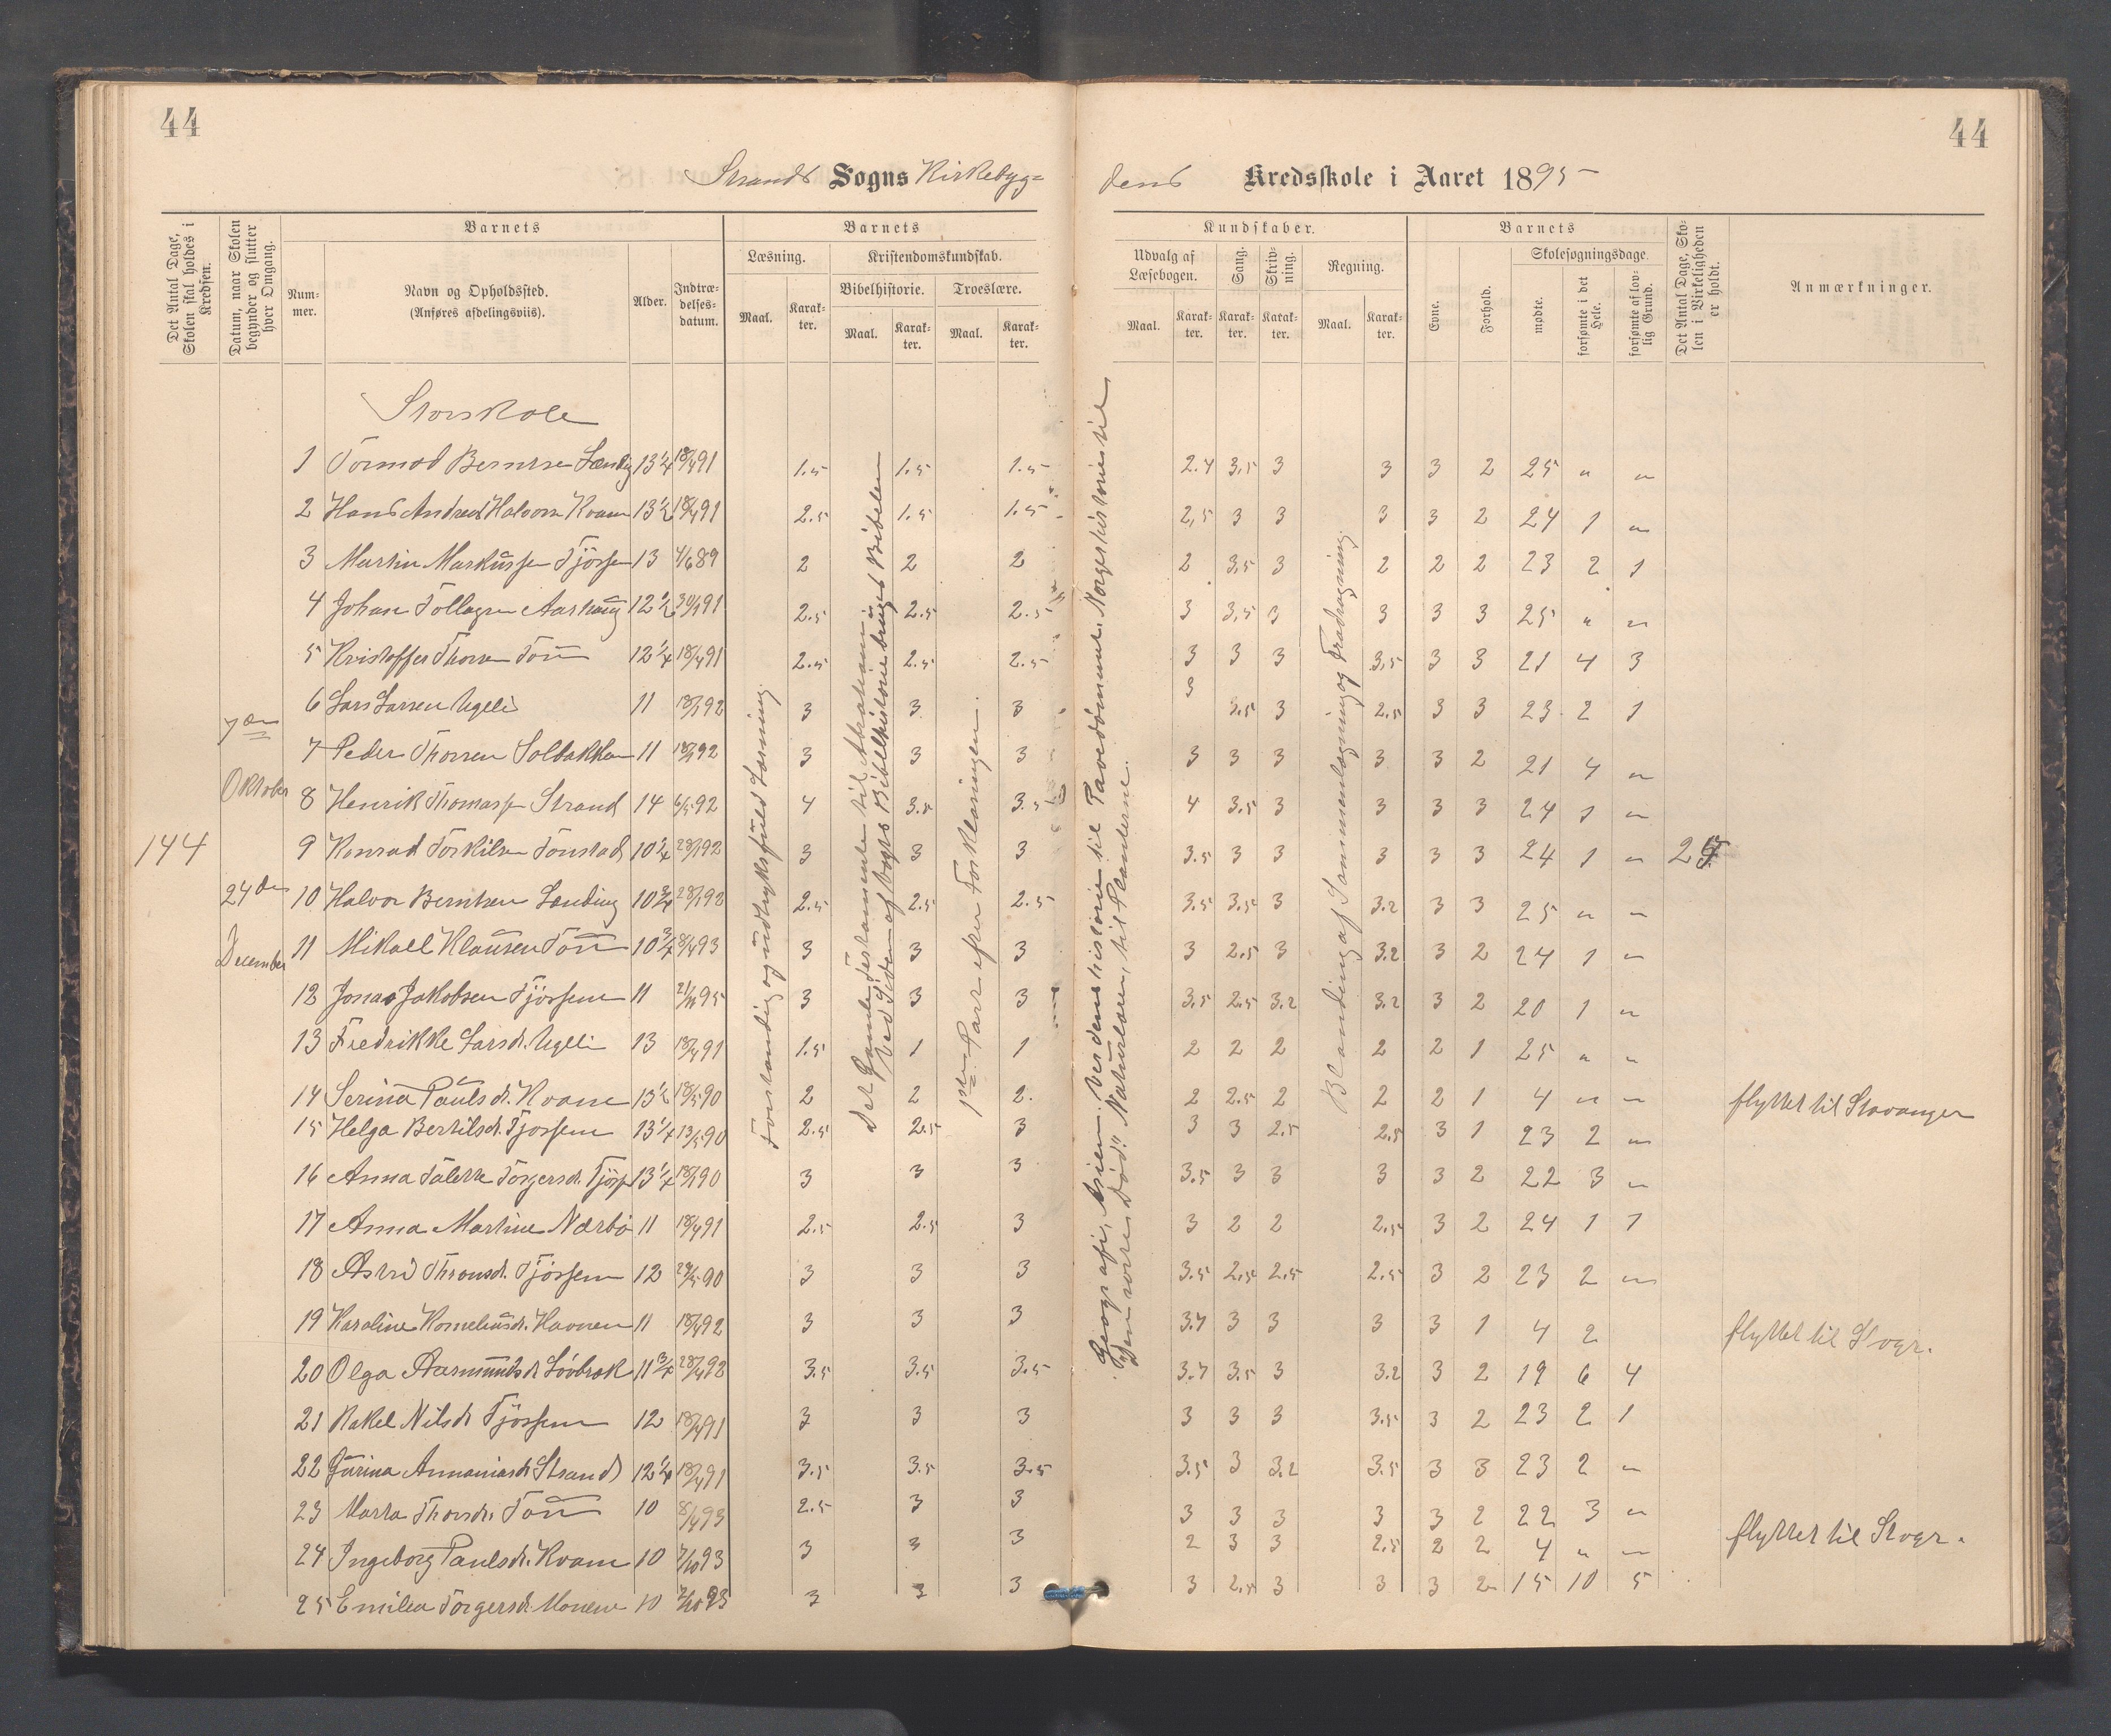 44
44
Strands Sogns Kirkebyg=
dens Kredsskole i Aaret 1895
Det Antal Dage, Skolen skal holdes i Kredsen.
Datum, naar Skolen begynder og slutter hver Omgang.
Barnets
Num-
mer.
Navn og Opholdssted.
(Anføres afdelingsviis).
Alder.
Indtræ-
delses-
datum.
Barnets
Læsning.
Maal.
Karak-
ter.
Kristendomskundskab.
Bibelhistorie.
Maal.
Karak-
ter.
Troeslære.
Maal.
Karak-
ter.
Kundskaber.
Udvalg af
Læsebogen.
Maal.
Karak-
ter.
Sang.
Karak-
ter.
Skriv-
ning.
Karak-
ter.
Regning.
Maal.
Karak-
ter.
Barnets
Evne.
Forhold.
Skolesøgningsdage.
mødte.
forsømte i det Hele.
forsømte af lov-
lig Grund.
Det Antal Dage, Sko-
len i Virkeligheden
er holdt.
Anmærkninger.
Storskole
144
7de
Oktober
24de
December
Forstandig og udtryksfuld Læsning.
Det Gamle Testamente til Abraham
ved Siden af Vogts Bibelhistorie bruges Bibelen
1ste Part efter Forklaringen.
Geografi, Asien. Verdenshistorie til Pavedømmet. Norgeshistorie til
"Den sorte Død". Naturlæren, til Planterne.
Blanding af Sammenlægning og Fradragning
1 Tormod Berntsen Lending 13 1/4 18/4 91 1.5 1.5 1.5 2.4 3,5 3 3 3 2 25 " "
2 Hans Andreas Halvorsen Kvame 13 1/2 18/4 91 2.5 1.5 1.5 2,5 3 3 3 3 2 24 1 "
3 Martin Markussen Tjössem 13 4/6 89 2 2 2 2 3,5 3 2 2 2 23 2 1
4 Johan Tollagsen 12 1/2 30/1 91 2.5 2.5 2.5 3 3,5 3 3 3 3 25 " "
5 Kristoffer Thorsen Tou 12 1/4 18/4 91 2.5 2.5 2.5 3 3 3 3,5 3 3 21 4 3
6 Lars Larsen Ugeli 11 18/1 92 3 3 3 3 3.5 3 2.5 3 3 23 2 1
7 Peder Thorsen Solbakken 11 18/1 92 3 3 3 3 3 3 3 3 2 21 4 "
8 Henrik Thomassen Strand 14 6/5 92 4 3.5 3.5 4 3.5 3 3 3 3 24 1 "
9 Konrad Torkilsen Tonstad 10 1/4 28/1 92 3 3 3 3.5 3 3 3 3 3 24 1 " 25
10 Halvor Berntsen Lending 10 3/4 28/1 92 2.5 2.5 2.5 3.5 3.5 3 3.2 3 3 25 " "
11 Mikael Klausen Tou 10 3/4 8/4 93 3 3 3 3 2.5 3 3.2 3 2 24 1 "
12 Jonas Jakobsen Tjössem 11 95 3 3 3 3.5 2.5 3.2 3.2 3 2 20 1 "
13 Fredrikke Larsdr. Ugeli 13 18/4 91 1.5 1 1 2 2 2 2 2 1 25 " "
14 Serina Paulsdr. Kvame 13 1/2 18/5 90 2 2 2. 2 2.5 2 2 2 1 4 " " flyttet til Stavanger
15 Helga Bertilsdr. Tjossem 13 1/4 13/5 90 2.5 2.5 3 3 3 2.5 2.5 3 1 23 2 "
16 Anna Torgersdr. Tjöss 13 1/4 90 3 3 3 3.5 3 3 3 3 2 22 3 "
17 Anna Martine Nærbö 11 18/4 91 2.5 2.5 3 3 2 2 2.5 3 2 24 1 1
18 Astri Thronsdr. Tjössem 12 29/5 90 3 3 3 3.5 2.5 2.5 2.5 3 2 23 2 "
19 Karoline Korneliusdr. Havnen 11 18/4 92 3 3 3 3.7 3 3 3 3 1 4 2 flyttet til Stvgr.
20 Olga Aasmundsdr Lövbrok 11 3/4 28/4 92 3.5 3.5 3.5 3.7 3.5 3 3.2 3 2 19 6 4
21 Rakel Nilsdr Tjössem 12 18/4 91 3 3 3 3 3 3 3.5 3 2 23 2 1
22 Gurina Annaniasdr Strand 12 1/4 18/4 91 3.5 3.5 3.5 3.5 3 3.2 3.5 3 3 23 2 "
23 Marta Thorsdr. Tou 10 8/4 93 2.5 3 3 3 3 3 3 3 2 22 3 "
24 Ingeborg Paulsdr. Kvame 10 7/10 93 3 3 3 2 3 3 2.5 2 2 4 " " flyttet til Stvgr.
25 Emilie Torgersdr. Monene 10 7/10 93 3 3 3 3 2.5 3 3 3 2 15 10 5